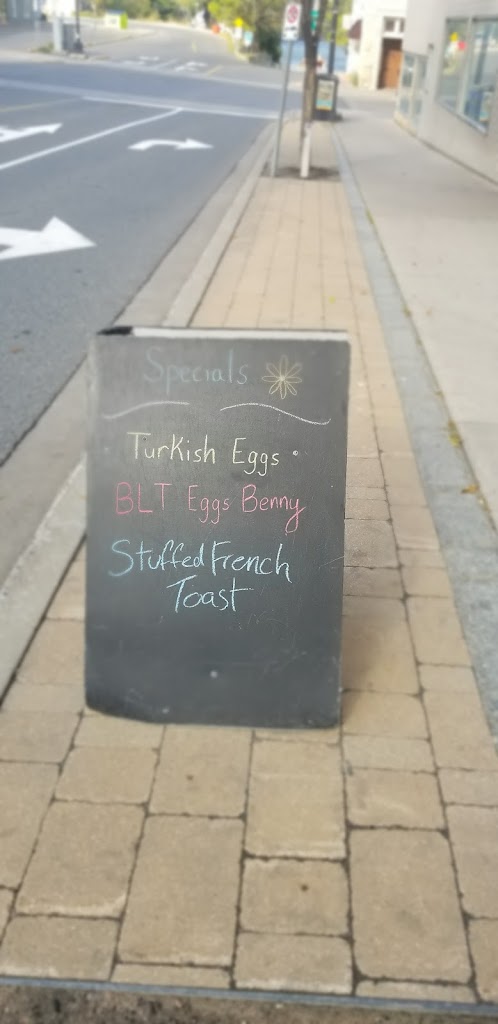 Specials
Turkish Eggs
BLT Eggs Benny
Stuffed French
Toast